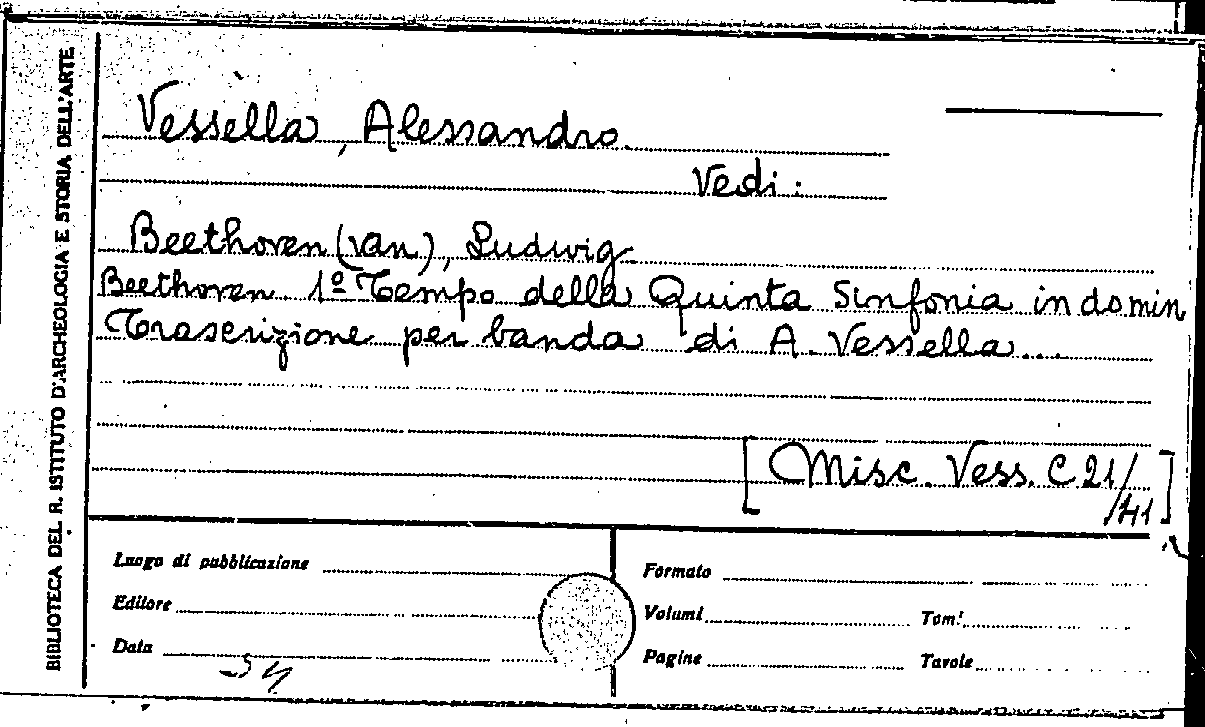 BIBLIOTECA DEL R. ISTITUTO D'ARCHEOLOGIA E STORIA DELL'ARTE
Vessella, Alessandro.
Vedi:
Beethoven (van), Ludwig
Beethoven. 1º Tempo della Quinta Sinfonia in do min
Trascrizione per banda di A. Vessella...
[Misc. Vess. C 21/
/41]
Luogo di pubblicazione
Formato
Editore
Volumi
Tomi
Data
Pagine
Tavole